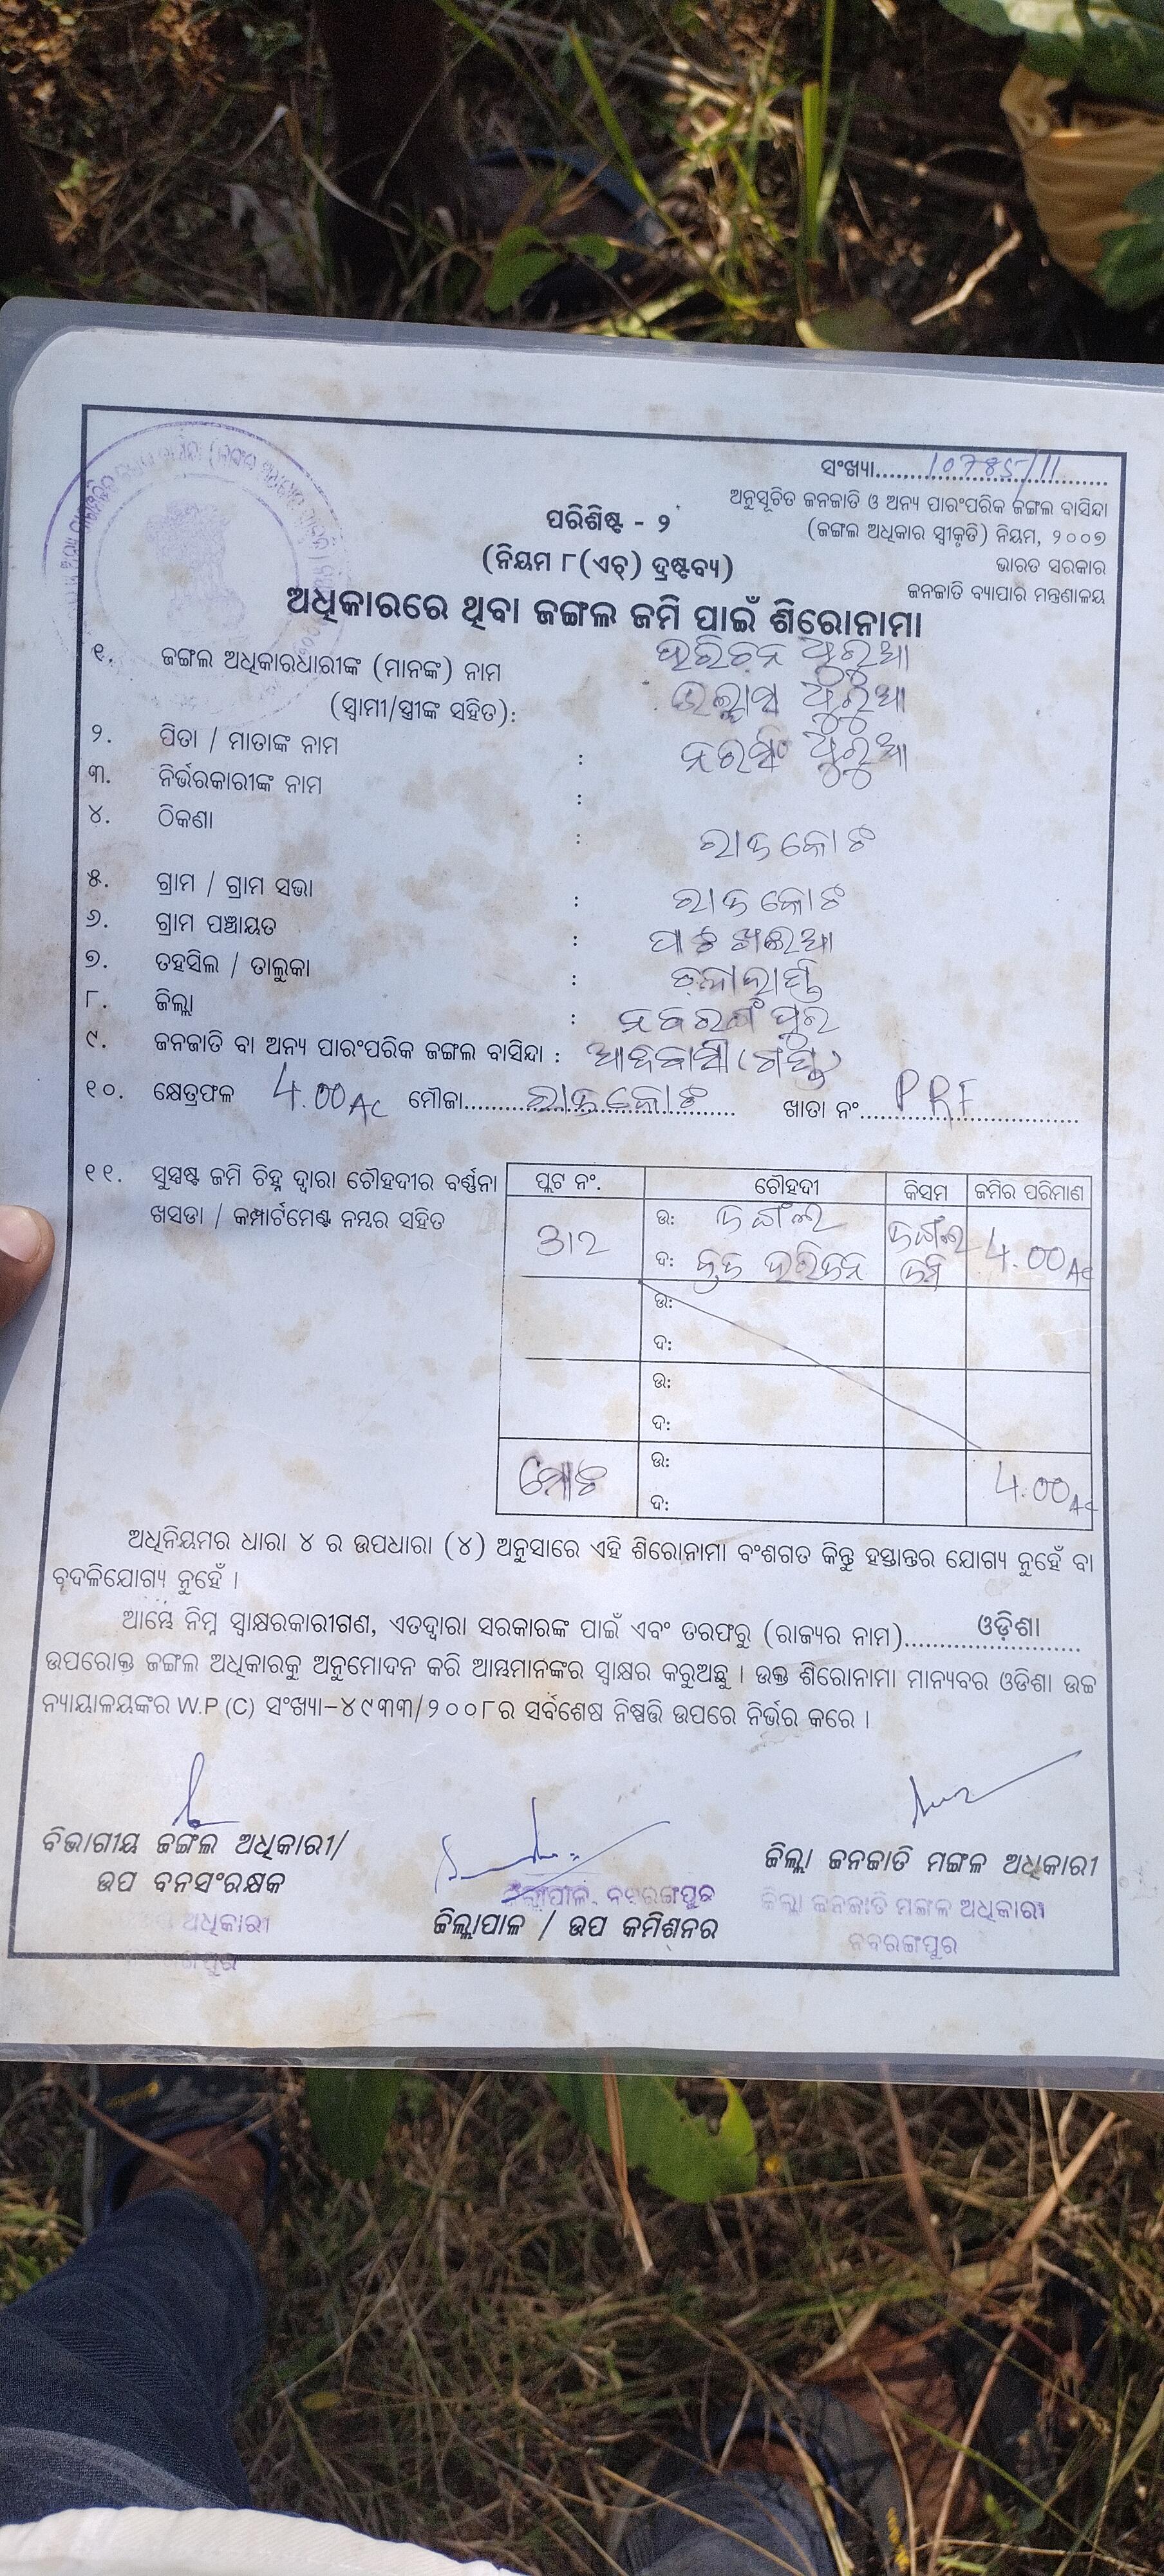 ସଂଖ୍ୟା..........10785/11..........
ଅନୁସୂଚିତ ଜନଜାତି ଓ ଅନ୍ୟ ପାରଂପରିକ ଜଙ୍ଗଲ ବାସିନ୍ଦା
(ଜଙ୍ଗଲ ଅଧିକାର ସ୍ୱୀକୃତି) ନିୟମ, ୨୦୦୭
ଭାରତ ସରକାର
ଜନଜାତି ବ୍ୟାପାର ମନ୍ତ୍ରଣାଳୟ
ପରିଶିଷ୍ଟ - ୨
(ନିୟମ ୮(ଏଚ୍) ଦ୍ରଷ୍ଟବ୍ୟ)
ଅଧିକାରରେ ଥିବା ଜଙ୍ଗଲ ଜମି ପାଇଁ ଶିରୋନାମା
୧. ଜଙ୍ଗଲ ଅଧିକାରଧାରୀଙ୍କ (ମାନଙ୍କ) ନାମ
(ସ୍ୱାମୀ/ସ୍ତ୍ରୀଙ୍କ ସହିତ):
୨. ପିତା / ମାତାଙ୍କ ନାମ :
୩. ନିର୍ଭରକାରୀଙ୍କ ନାମ :
୪. ଠିକଣା : ରାଜକୋଟ
୫. ଗ୍ରାମ / ଗ୍ରାମ ସଭା : ରାଜକୋଟ
୬. ଗ୍ରାମ ପଞ୍ଚାୟତ :
୭. ତହସିଲ / ତାଲୁକା :
୮. ଜିଲ୍ଲା : ନବରଙ୍ଗପୁର
୯. ଜନଜାତି ବା ଅନ୍ୟ ପାରଂପରିକ ଜଙ୍ଗଲ ବାସିନ୍ଦା : ଆଦିବାସୀ (ଗଣ୍ଡ)
୧୦. କ୍ଷେତ୍ରଫଳ 4.00 Ac ମୌଜା..........ରାଜକୋଟ.......... ଖାତା ନଂ..........PRF..........
୧୧. ସୁସ୍ପଷ୍ଟ ଜମି ଚିହ୍ନ ଦ୍ୱାରା ଚୌହଦୀର ବର୍ଣ୍ଣନା
ଖସଡା / କମ୍ପାର୍ଟମେଣ୍ଟ ନମ୍ବର ସହିତ
ପ୍ଲଟ ନଂ. ଚୌହଦୀ କିସମ ଜମିର ପରିମାଣ
312 ଉ: ଜଙ୍ଗଲ ଜଙ୍ଗଲ 4.00 Ac
ଦ: ହରିଜନ ଜମି
ଉ:
ଦ:
ଉ:
ଦ:
ମୋଟ ଉ: 4.00 Ac
ଦ:
ଅଧିନିୟମର ଧାରା ୪ ର ଉପଧାରା (୪) ଅନୁସାରେ ଏହି ଶିରୋନାମା ବଂଶଗତ କିନ୍ତୁ ହସ୍ତାନ୍ତର ଯୋଗ୍ୟ ନୁହେଁ ବା
ବଦଳିଯୋଗ୍ୟ ନୁହେଁ ।
ଆମ୍ଭେ ନିମ୍ନ ସ୍ୱାକ୍ଷରକାରୀଗଣ, ଏତଦ୍ୱାରା ସରକାରଙ୍କ ପାଇଁ ଏବଂ ତରଫରୁ (ରାଜ୍ୟର ନାମ)..........ଓଡ଼ିଶା..........
ଉପରୋକ୍ତ ଜଙ୍ଗଲ ଅଧିକାରକୁ ଅନୁମୋଦନ କରି ଆମ୍ଭମାନଙ୍କର ସ୍ୱାକ୍ଷର କରୁଅଛୁ । ଉକ୍ତ ଶିରୋନାମା ମାନ୍ୟବର ଓଡିଶା ଉଚ୍ଚ
ନ୍ୟାୟାଳୟଙ୍କର W.P (C) ସଂଖ୍ୟା-୪୯୩୩/୨୦୦୮ର ସର୍ବଶେଷ ନିଷ୍ପତ୍ତି ଉପରେ ନିର୍ଭର କରେ ।
ବିଭାଗୀୟ ଜଙ୍ଗଲ ଅଧିକାରୀ/
ଉପ ବନସଂରକ୍ଷକ
ଅଧିକାରୀ
ଜିଲ୍ଲାପାଳ, ନବରଙ୍ଗପୁର
ଜିଲ୍ଲାପାଳ / ଉପ କମିଶନର
ଜିଲ୍ଲା ଜନଜାତି ମଙ୍ଗଳ ଅଧିକାରୀ
ଜିଲ୍ଲା ଜନଜାତି ମଙ୍ଗଳ ଅଧିକାରୀ
ନବରଙ୍ଗପୁର